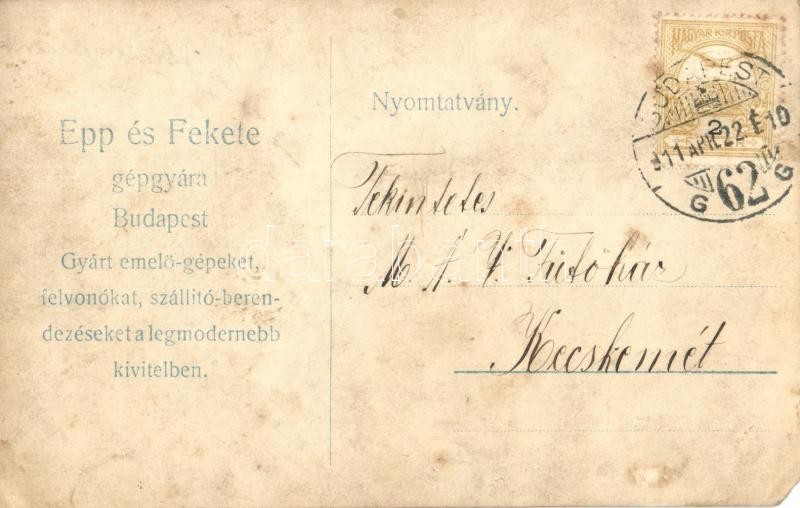 Epp és Fekete
gépgyára
Budapest
Gyárt emelő-gépeket,
felvonókat, szállitó-beren-
dezéseket a legmodernebb
kivitelben.
Nyomtatvány.
MAGYAR KIR. POSTA
BUDAPEST
911 APR. 22 E10
G 62 G
Tekintetes
M. Á. V. Fűtőház
Kecskemét
darabanth